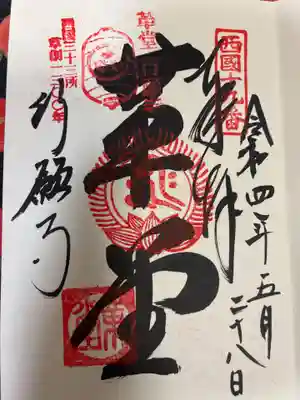 西國十九番
奉拝
令和四年五月
二十八日
革堂
革堂
西国三十三所
草創一三〇〇年
行願寺